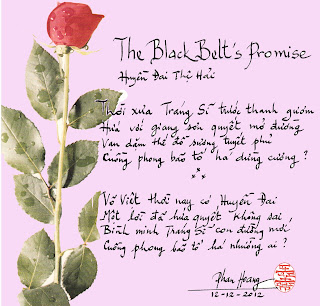 The Black Belt's Promise
Huyền Đai Thệ Hải
Thời xưa Tráng Sĩ trước thanh gươm
Hứa với giang sơn quyết mở đường
Vạn dặm thề đổ sương tuyết phủ
Cuồng phong bão tố há dừng cương ?
***
Võ Việt thời nay có Huyền Đai
Một lời đã hứa quyết không sai,
Bình minh Tráng Sĩ con đường mới
Cuồng phong bão tố há nhường ai ?
Phan Hoang
12-12-2012